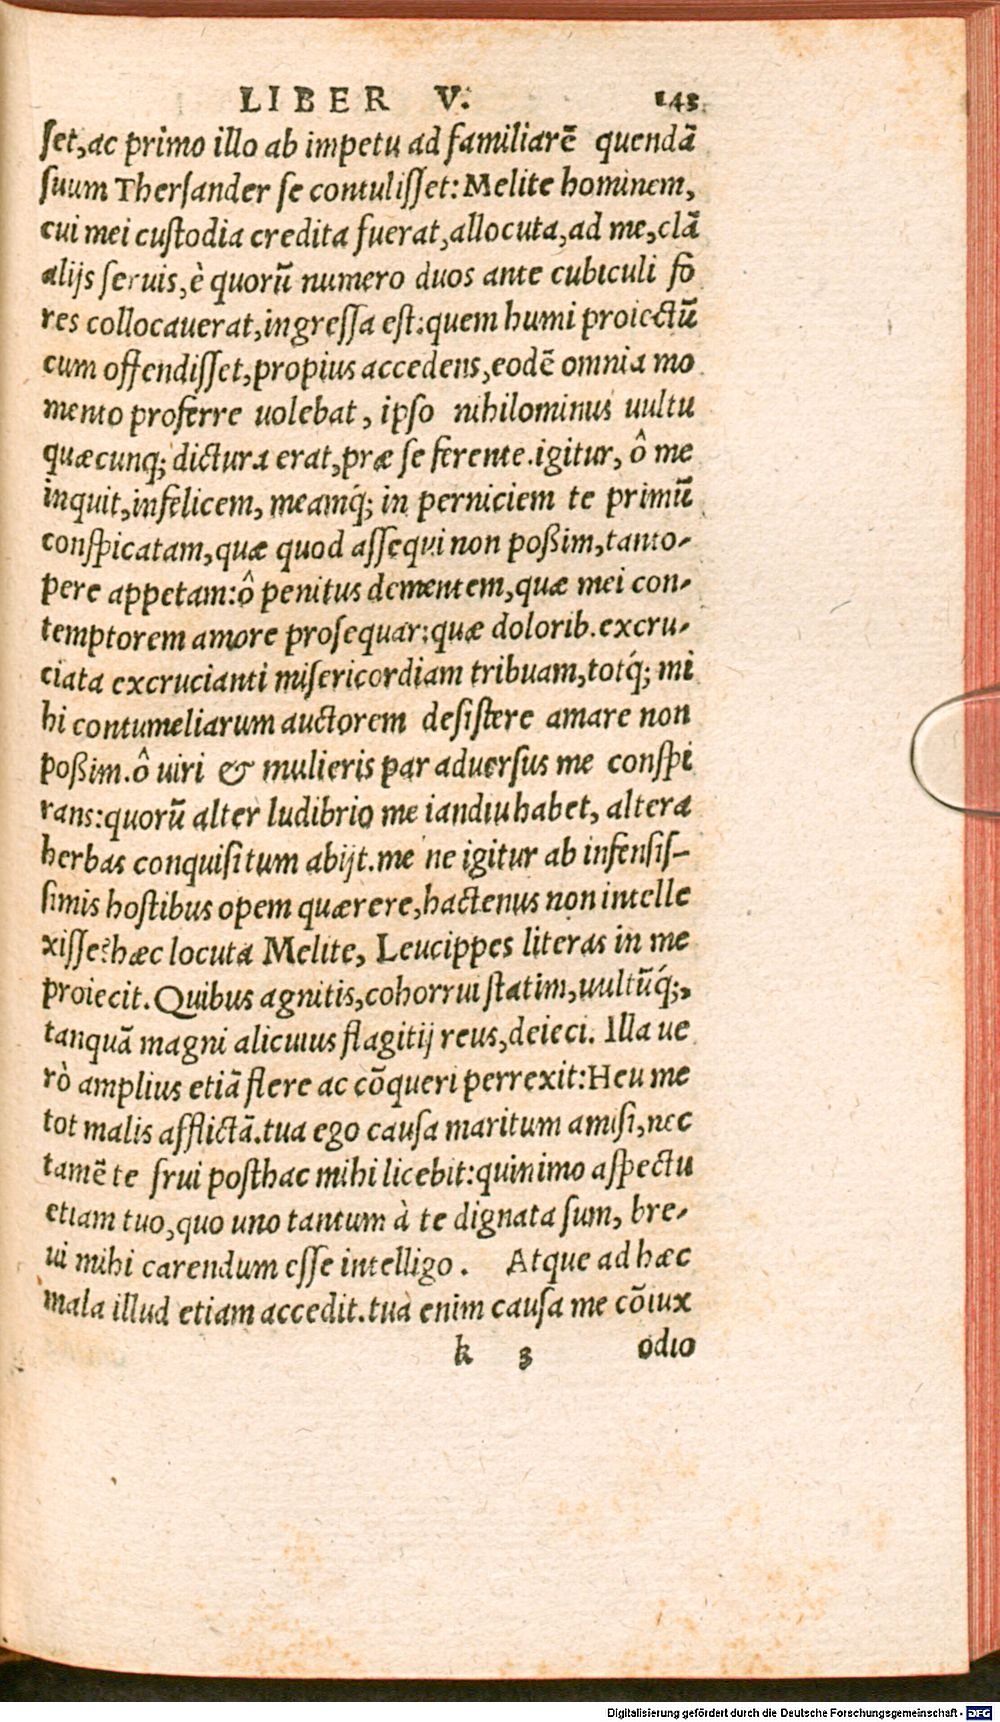 LIBER V. 143
set, ac primo illo ab impetu ad familiarē quendā
suum Thersander se contulisset: Melite hominem,
cui mei custodia credita fuerat, allocuta, ad me, clā
alijs seruis, è quorū numero duos ante cubiculi fo
res collocauerat, ingressa est: quem humi proiectū
cum offendisset, propius accedens, eodē omnia mo
mento proferre uolebat, ipso nihilominus uultu
quæcunq; dictura erat, præ se ferente. igitur, ô me
inquit, infelicem, meamq́; in perniciem te primū
conspicatam, quæ quod assequi non poßim, tanto-
pere appetam: ô penitus dementem, quæ mei con-
temptorem amore prosequar: quæ dolorib. excru-
ciata excrucianti misericordiam tribuam, totq́; mi
hi contumeliarum auctorem desistere amare non
poßim. ô uiri & mulieris par aduersus me conspi
rans: quorū alter ludibrio me iandiu habet, altera
herbas conquisitum abijt. me ne igitur ab infensis-
simis hostibus opem quærere, hactenus non intelle
xisse? hæc locuta Melite, Leucippes literas in me
proiecit. Quibus agnitis, cohorrui statim, uultūq́;,
tanquā magni alicuius flagitij reus, deieci. Illa ue
rò amplius etiā flere ac cōqueri perrexit: Heu me
tot malis afflictā. tua ego causa maritum amisi, nec
tamē te frui posthac mihi licebit: quinimo aspectu
etiam tuo, quo uno tantum à te dignata sum, bre-
ui mihi carendum esse intelligo. Atque ad hæc
mala illud etiam accedit. tua enim causa me cōiux
k 3 odio
Digitalisierung gefördert durch die Deutsche Forschungsgemeinschaft - DFG